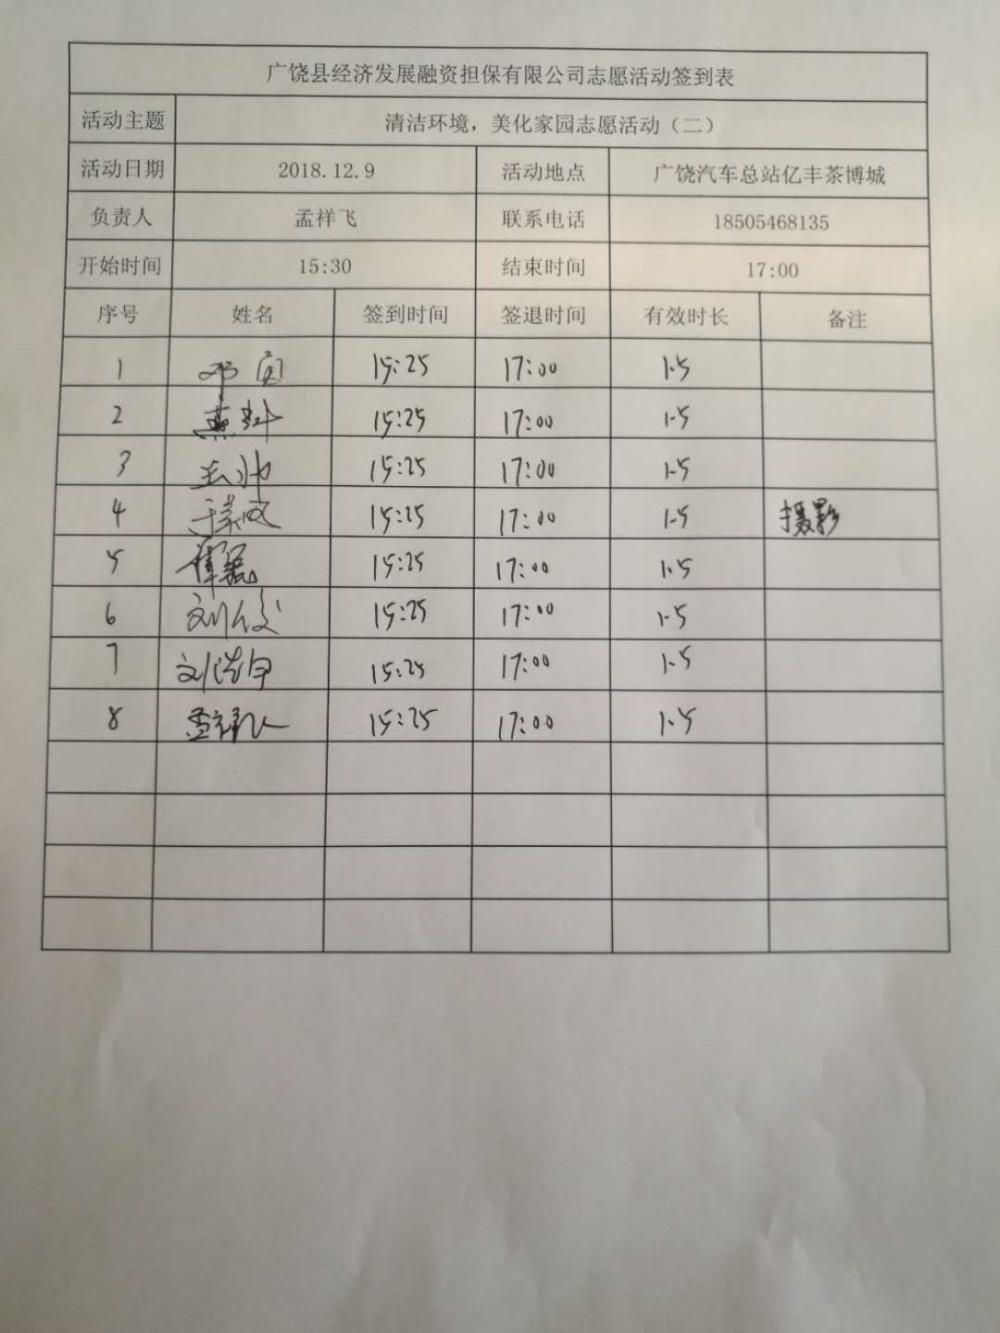 广饶县经济发展融资担保有限公司志愿活动签到表
活动主题 清洁环境，美化家园志愿活动（二）
活动日期 2018.12.9 活动地点 广饶汽车总站亿丰茶博城
负责人 孟祥飞 联系电话 18505468135
开始时间 15:30 结束时间 17:00
序号 姓名 签到时间 签退时间 有效时长 备注
1 15:25 17:00 1.5
2 15:25 17:00 1.5
3 15:25 17:00 1.5
4 15:25 17:00 1.5 摄影
5 15:25 17:00 1.5
6 15:25 17:00 1.5
7 15:25 17:00 1.5
8 孟祥飞 15:25 17:00 1.5